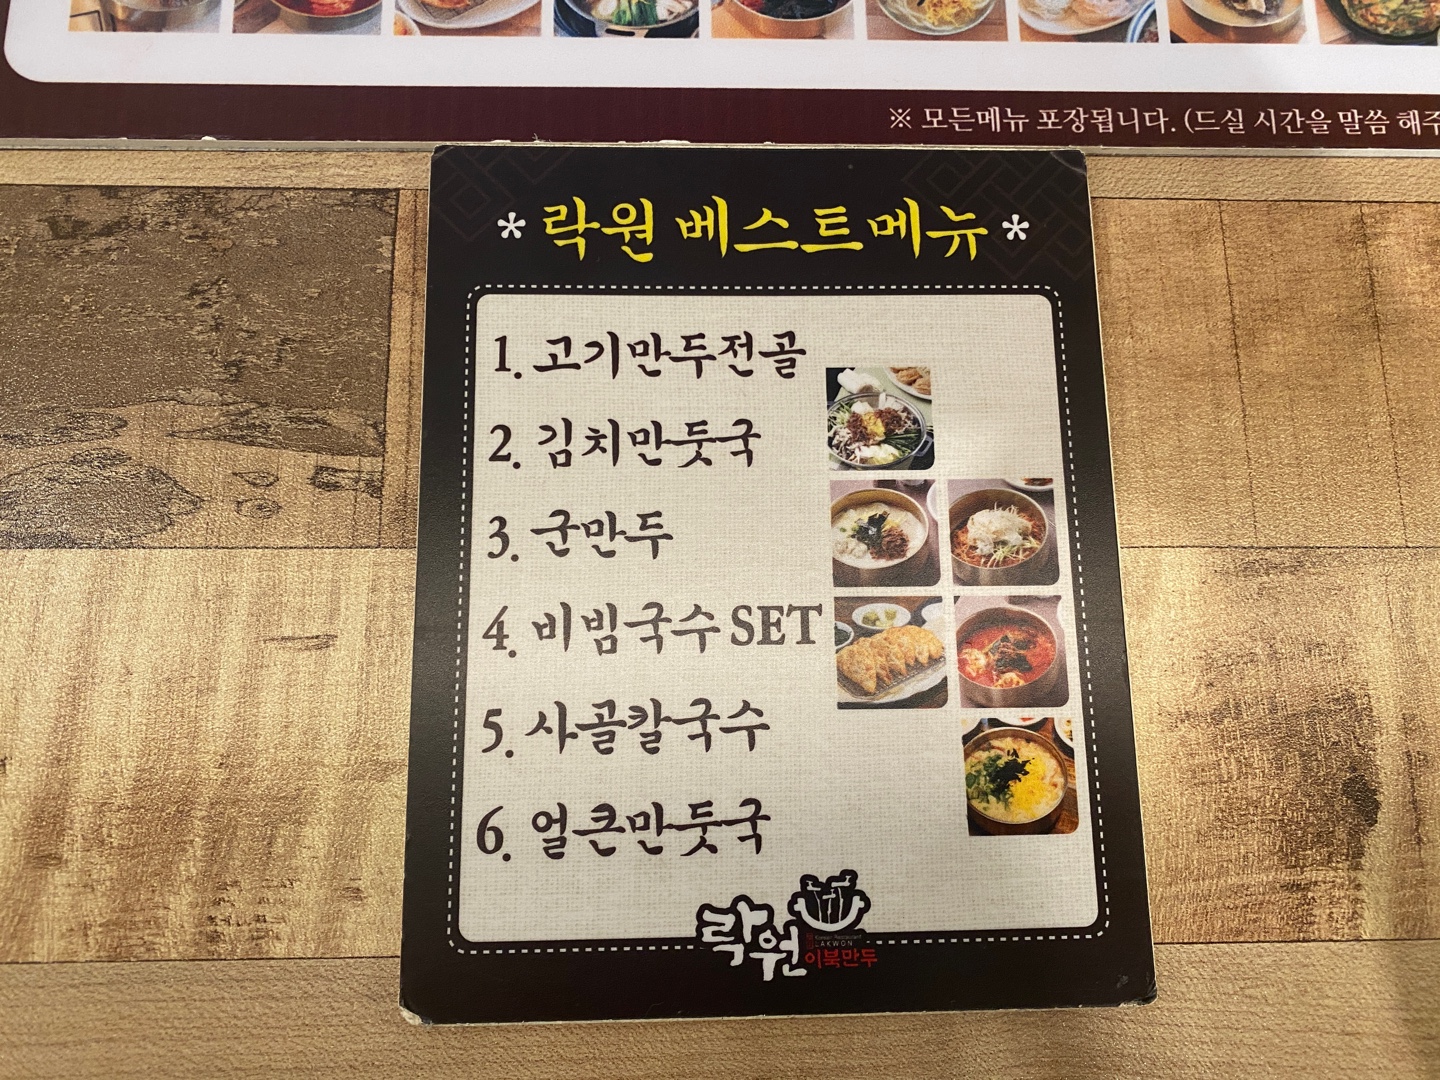 ※ 모든메뉴 포장됩니다. (드실 시간을 말씀 해주
* 락원 베스트메뉴 *
1. 고기만두전골
2. 김치만둣국
3. 군만두
4. 비빔국수 SET
5. 사골칼국수
6. 얼큰만둣국
락원
Korean Restaurant
LAKWON
이북만두